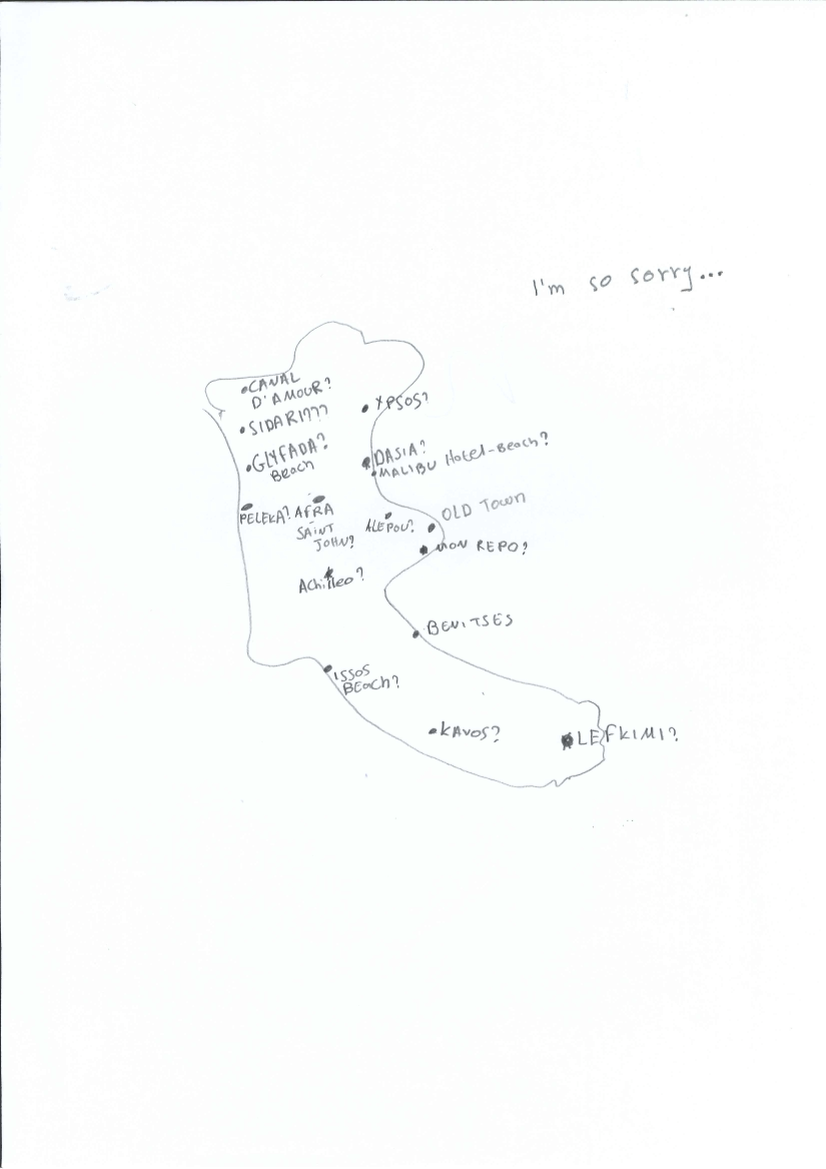 I'm so sorry...
CANAL
D'AMOUR?
YPSOS?
SIDARI???
GLYFADA?
Beach
DASIA?
MALIBU Hotel-Beach?
PELEKA?
AFRA
SAINT
JOHN?
ALEPOU?
OLD TOWN
MON REPO?
Achilleo?
BENITSES
ISSOS
BEach?
KAVOS?
LEFKIMI?